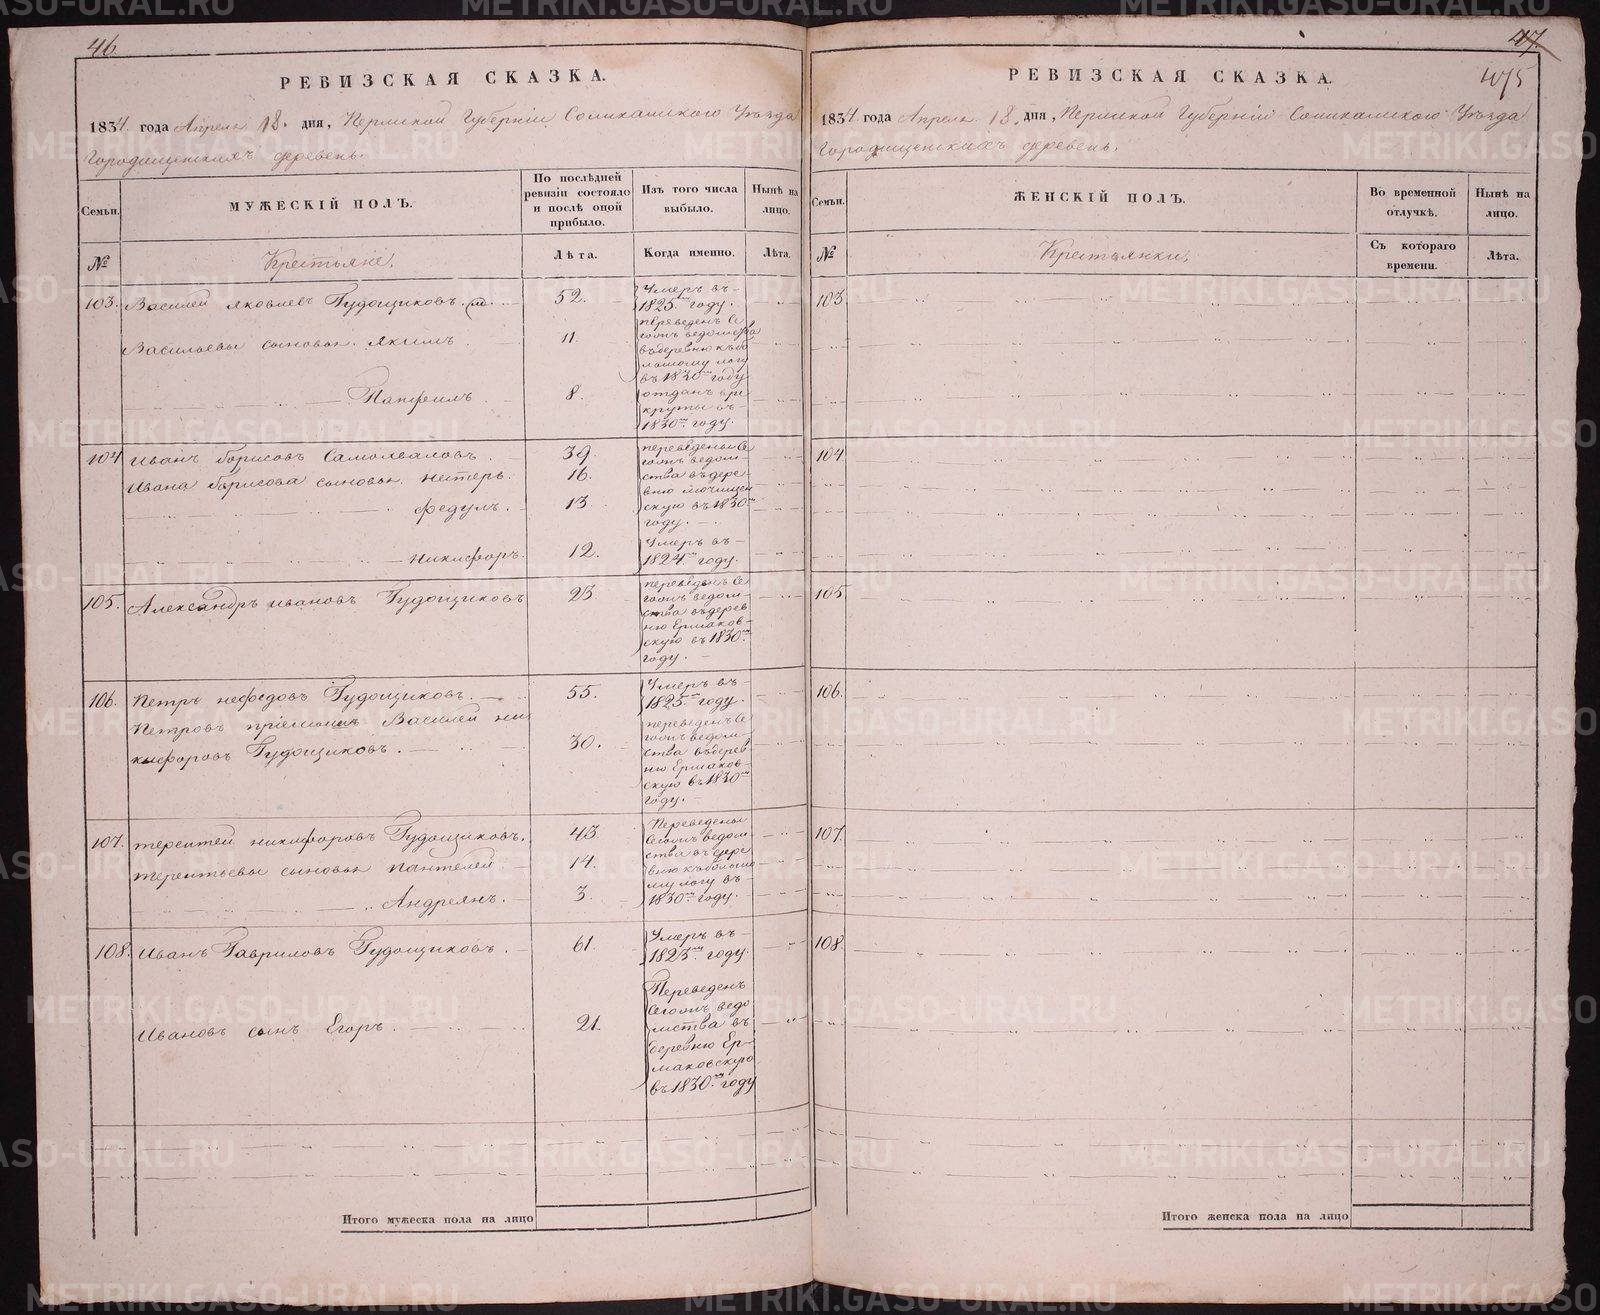 46.
РЕВИЗСКАЯ СКАЗКА.
1834. года Апреля 18. дня, Пермской Губерніи Соликамского Уѣзда
Городищенскихъ деревень.
Семьи.
МУЖЕСКІЙ ПОЛЪ.
По послѣдней
ревизіи состояло
и послѣ оной
прибыло.
Изъ того числа
выбыло.
Нынѣ на
лицо.
№
Крестьяне.
Лѣта.
Когда именно.
Лѣта.
103. Василей яковлевъ Гудощиковъ. 52. Умеръ въ
1825мъ году.
Васильевы сыновья. якимъ 11. переведенъ Се
гомъ ведомства
въ деревню къ бо
льшому логу
въ 1830мъ году
Панфилъ 8. отданъ в ре
круты въ
1830мъ году.
104 иванъ борисовъ Самохваловъ 39. переведены Се
гомъ ведом
Ивана борисова сыновья. петеръ. 16. ства въ дере
вню
федулъ. 13 скую въ 1830мъ
году.
никифоръ. 12. Умеръ въ
1824мъ году.
105. Александръ ивановъ Гудощиковъ 23 переведенъ Се
гомъ ведом
ства въ дерев
ню Ермаков
скую въ 1830мъ
году.
106. петръ нефедовъ Гудощиковъ. 55. Умеръ въ
1825мъ году.
Петровъ пріемышъ Василей ни
кифоровъ Гудощиковъ. 30. переведенъ Се
гомъ ведом
ства въ дерев
ню Ермаков
скую въ 1830мъ
году.
107. терентей никифоровъ Гудощиковъ. 43. Переведены
Сегомъ ведом
терентьевы сыновья пантелей 14. ства въ дере
вню къ большо
му логу въ
Андреянъ. 3. 1830мъ году.
108. Иванъ Гавриловъ Гудощиковъ. 61. Умеръ въ
1823мъ году.
Ивановъ сынъ Егоръ. 21. Переведенъ
Сегомъ ведо
мства въ
деревню Ер
маковскую
въ 1830мъ году
Итого мужеска пола на лицо
47.
475
РЕВИЗСКАЯ СКАЗКА.
1834 года Апреля 18. дня, Пермской Губерніи Соликамского Уѣзда
Городищенскихъ деревень.
Семьи.
ЖЕНСКІЙ ПОЛЪ.
Во временной
отлучкѣ.
Нынѣ на
лицо.
№
Крестьянки,
Съ котораго
времени.
Лѣта.
103
104
105
106.
107.
108.
Итого женска пола на лицо
METRIKI.GASO-URAL.RU